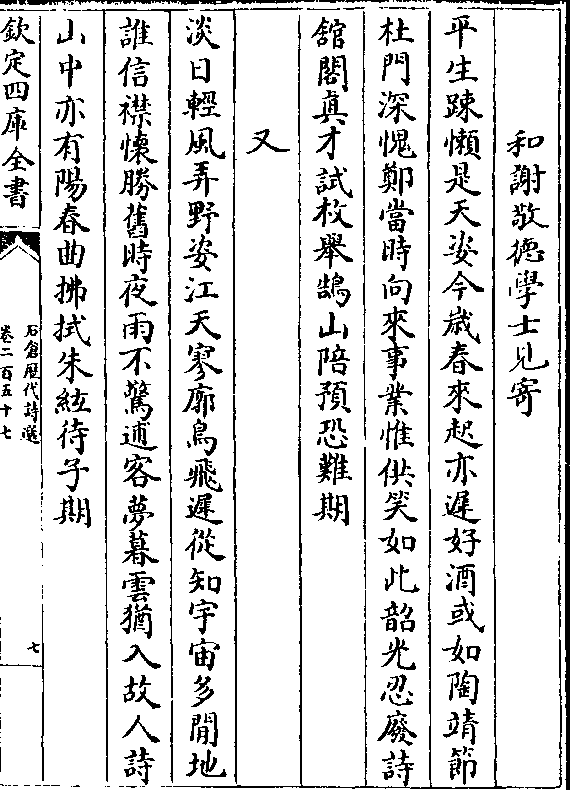 和謝敬德學士見寄
平生踈懶是天姿今歲春來起亦遲好酒或如陶靖節
杜門深愧鄭當時向來事業惟供笑如此韶光忍廢詩
舘閣真才試枚舉鵠山陪預恐難期
又
淡日輕風弄野姿江天寥廓鳥飛遲從知宇宙多閒地
誰信襟懷勝舊時夜雨不驚逋客夢暮雲猶入故人詩
山中亦有陽春曲拂拭朱絃待子期
欽定四庫全書
石倉歷代詩選
卷二百五十七
七